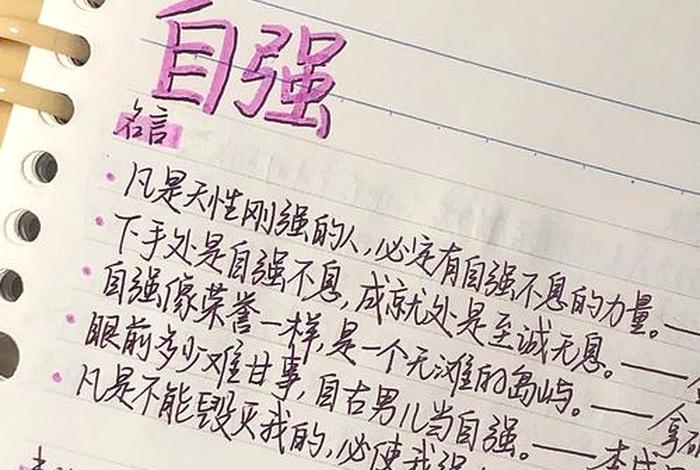 自强
名言
凡是天性刚强的人,必定有自强不息的力量。——
下手处是自强不息,成就处是至诚无息。——
自强像荣誉一样,是一个无滩的岛屿。——拿破
眼前多少难甘事,自古男儿当自强。——李咸
凡是不能毁灭我的,必使我强